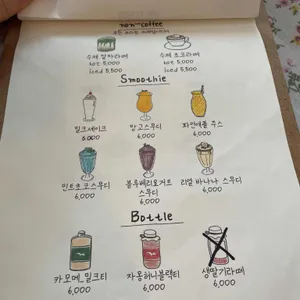 non-coffee
수제 말차라떼 수제 초코라떼
hot 5,000 hot 5,000
Iced 5,500 Iced 5,500
Smoothie
밀크쉐이크 망고스무디 파인애플 주스
6,000 6,000 6,000
민트초코스무디 블루베리요거트 스무디 리얼 바나나 스무디
6,000 6,000 6,000
Bottle
카모메 밀크티 자몽허니블랙티 생딸기라떼
6,000 6,000 6,000